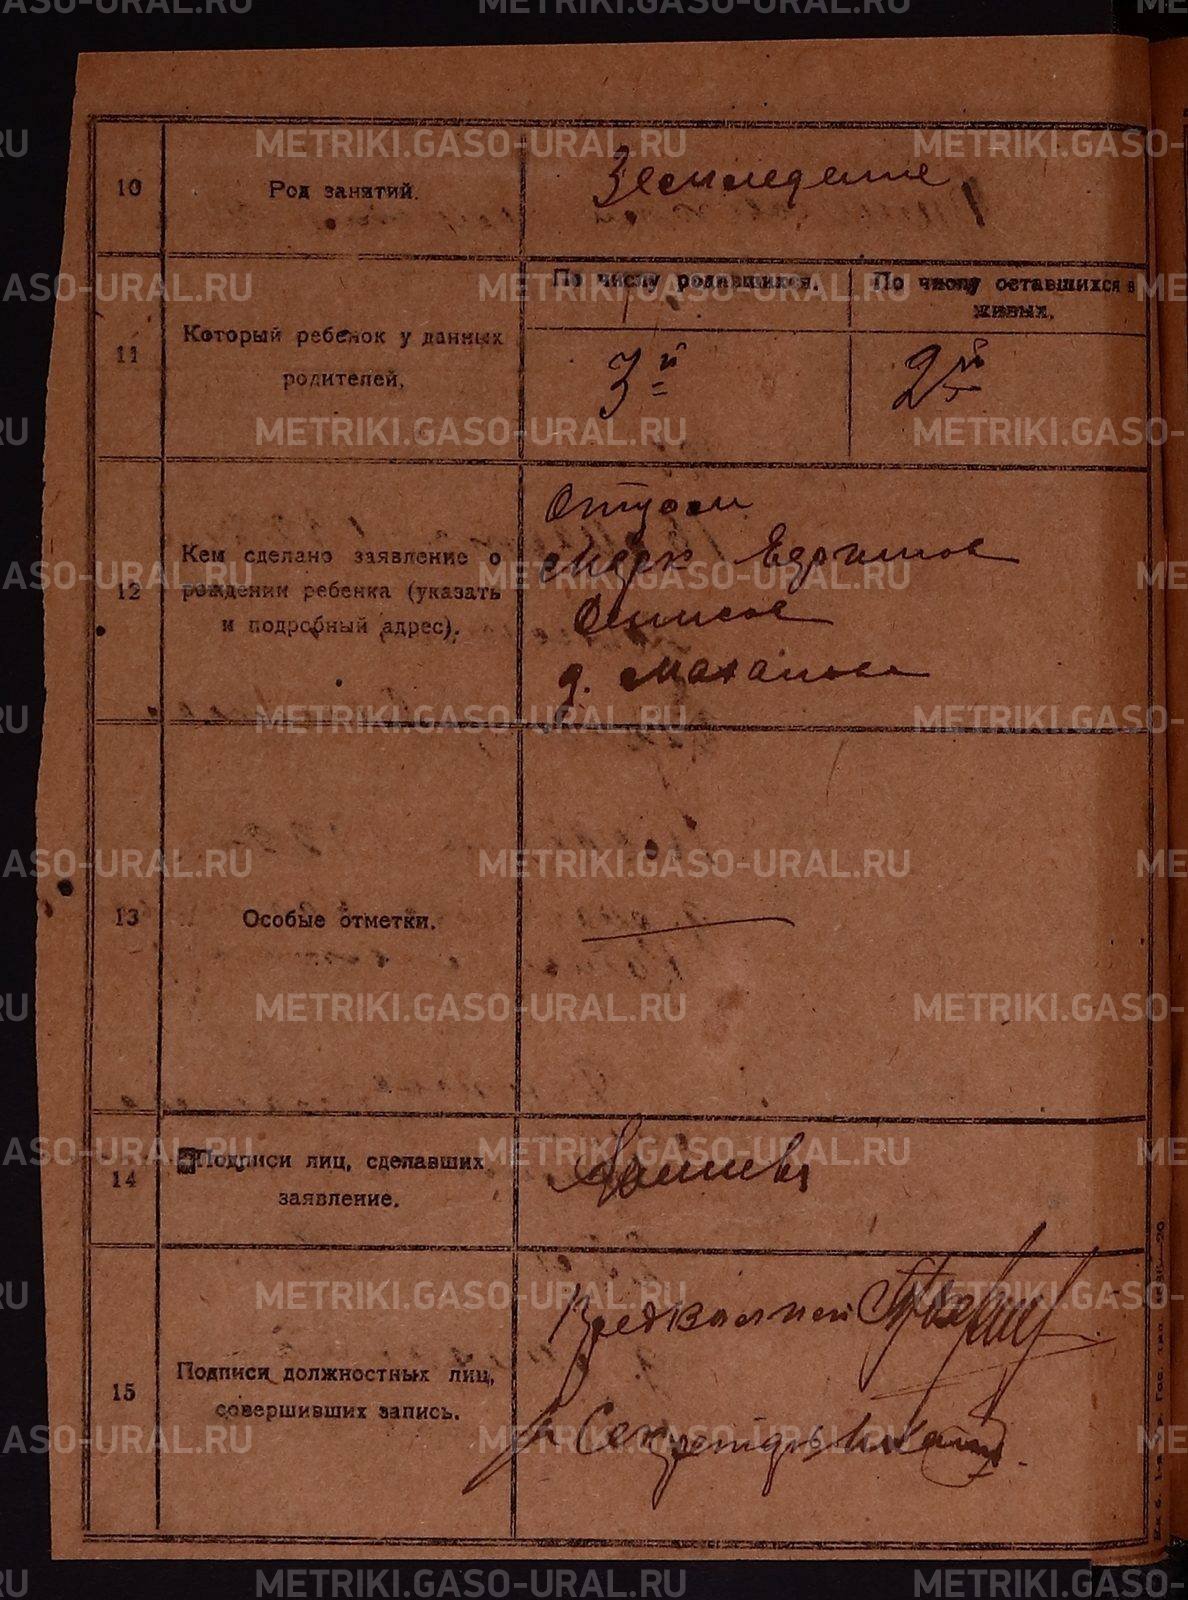 10
Род занятий.
Земледелие
11
Который ребенок у данных
родителей.
По числу родившихся.
По числу оставшихся в
живых.
3й
2й
12
Кем сделано заявление о
рождении ребенка (указать
и подробный адрес).
Отцом
Марк
д.
13
Особые отметки.
14
Подписи лиц, сделавших
заявление.
15
Подписи должностных лиц,
совершивших запись.
Секретарь
METRIKI.GASO-URAL.RU